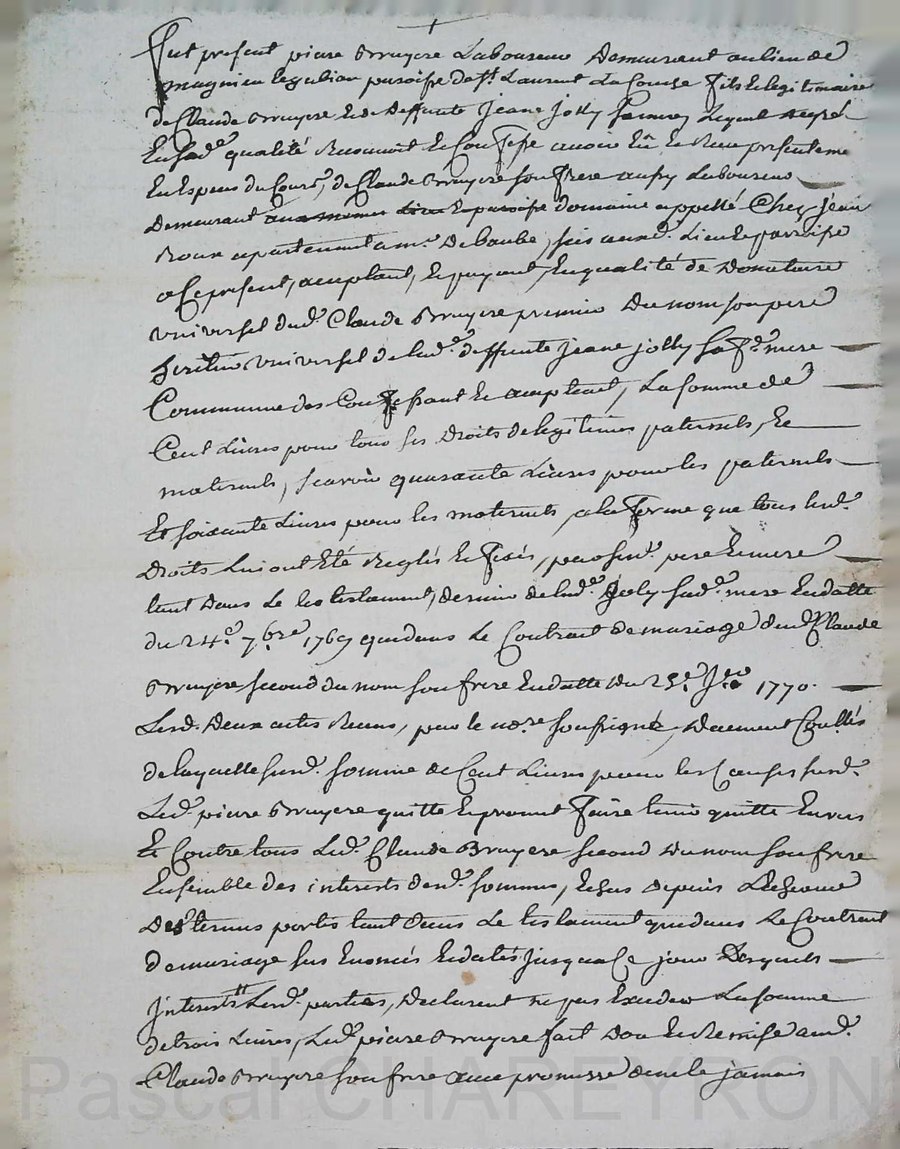 +
Fut present piere Bruyere Laboureur Demeurant au lieu de
paroisse de St Laurent La Conche fils & legitimaire
de Claude Bruyere & de Deffunte Jeane Jolly Lequel degré
En sad.e qualité Reconnoit & Confesse avoir Eü & Reçu presentemt
En Especes du Cours, de Claude Bruyere son frere aussy Laboureur
Demeurant domaine appellé Chez Jean
Roux apartenant a mr. Debaube, sis aud. Lieu & parroisse
a Ce present, acceptant, & payant, En qualité de Donataire
universel dud. Claude Bruyere premier Du nom son pere
heritier universel de lad.e deffunte Jeane Jolly sa fe. mere
Commune des Confessant & acceptant, La somme de
Cent Livres pour tous ses Droits de legitimes paternels, &
maternels, scavoir quarante Livres pour les paternels
Et soixante Livres pour les maternels, a la forme que tous lesd.
Droits Lui ont Eté Reglés & fixés, par sesd. pere & mere
tant Dans Le testament, dernier de lad.e Joly sad.e mere En datte
du 24e. 7bre. 1769 que dans Le Contrat de mariage dud. Claude
Bruyere second du nom son frere En datte Du 25e. 1770.
Lesd. Deux actes Recus, par le nore. soussigné, Duement Conllés
de laquelle susd. somme de Cent Livres pour les Causes susd.
Led. piere Bruyere quitte & promet faire tenir quitte Envers
Et Contre tous Led. Claude Bruyere second Du nom son frere
Ensemble des interets desd. sommes, Echus depuis
Des termes portés tant Dans Le testament que dans Le Contrat
de mariage sus Enoncés & datés jusqua Ce jour Desquels
jnterets Lesd. parties, Declarent ne pas Exceder La somme
de trois Livres, Led. piere Bruyere fait Don & Remise aud.
Claude Bruyere son frere avec promesse de ne le jamais
Pascal CHAREYRON